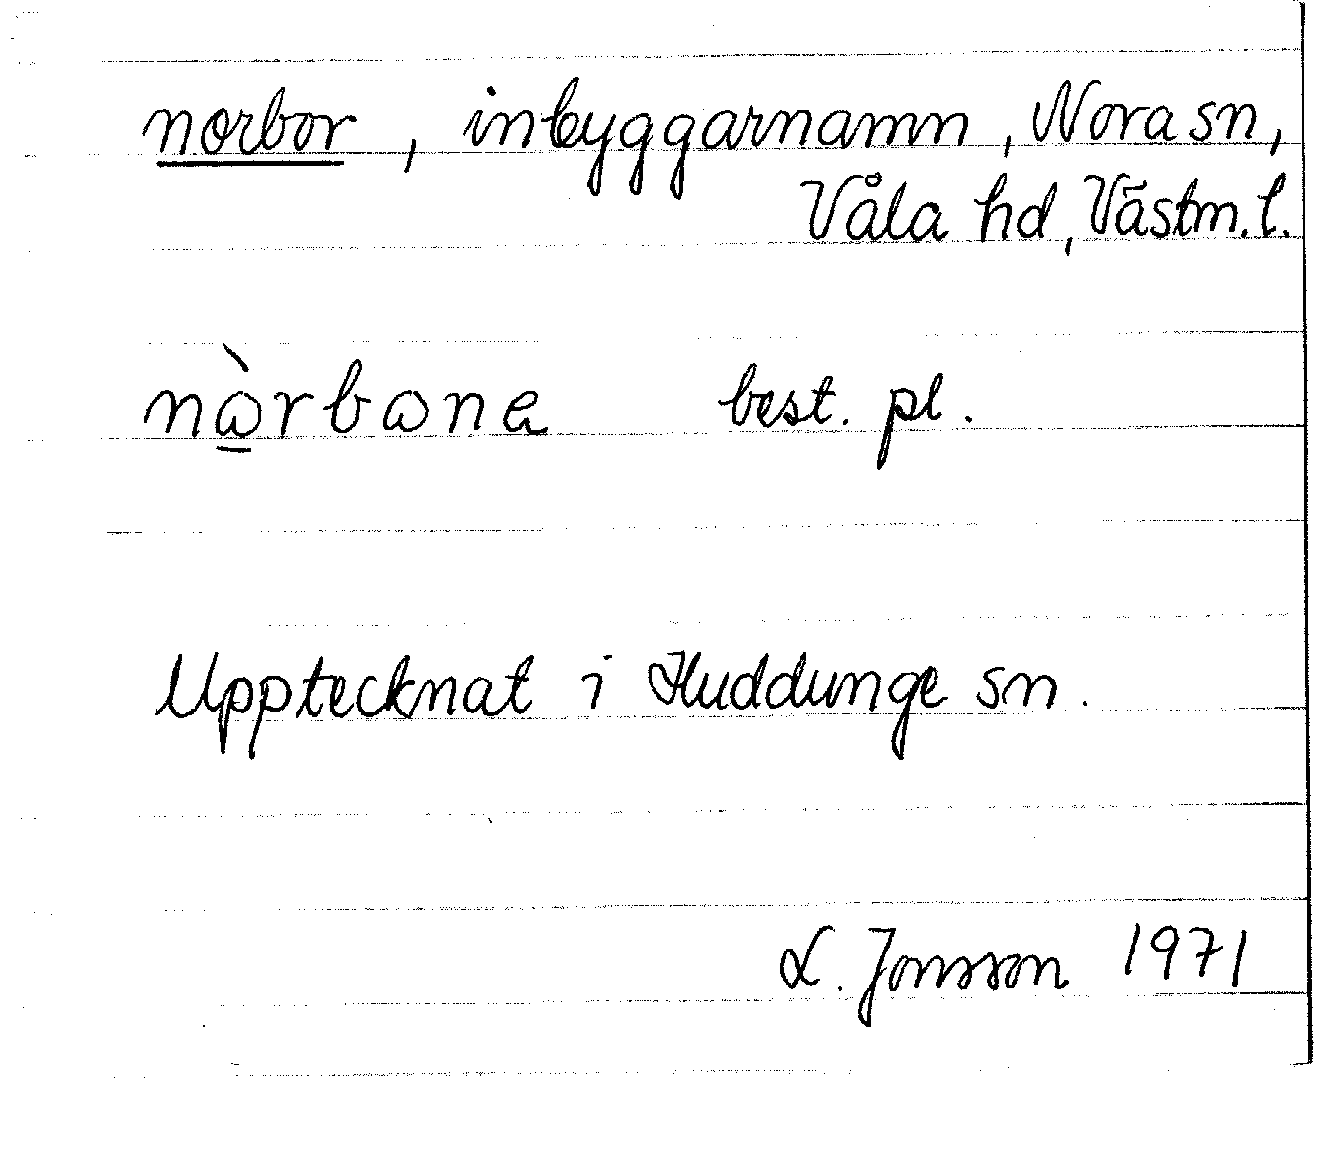 norbor, inbyggarnamn, Nora sn,
Våla hd, Västm. l.
nɷ̠̀rbɷnα best. pl.
Upptecknat i Huddunge sn.
L. Jonsson 1971